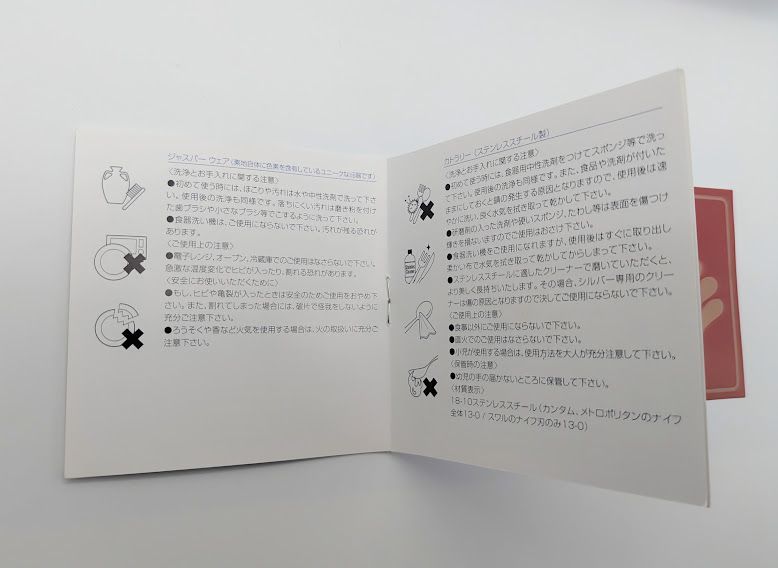 ジャスパー ウェア(素地自体に色素を含有しているユニークな焙器です)
〈洗浄とお手入れに関する注意〉
●初めて使う時には、ほこりや汚れは水や中性洗剤で洗って下さ
い。使用後の洗浄も同様です。落ちにくい汚れは磨き粉を付け
た歯ブラシや小さなブラシ等でこするように洗って下さい。
●食器洗い機は、ご使用にならないで下さい。汚れが残る恐れが
あります。
〈ご使用上の注意〉
●電子レンジ、オーブン、冷蔵庫でのご使用はなさらないで下さい。
急激な温度変化でヒビが入ったり、割れる恐れがあります。
〈安全にお使いいただくために〉
●もし、ヒビや亀裂が入ったときは安全のためご使用をおやめ下
さい。また、割れてしまった場合には、破片で怪我をしないように
充分ご注意下さい。
●ろうそくや香など火気を使用する場合は、火の取扱いに充分ご
注意下さい。
カトラリー(ステンレススチール製)
〈洗浄とお手入れに関する注意〉
●初めて使う時には、食器用中性洗剤をつけてスポンジ等で洗っ
て下さい。使用後の洗浄も同様です。また、食品や洗剤が付いた
ままにしておくと錆の発生する原因となりますので、使用後は速
やかに洗い、良く水気を拭き取って乾かして下さい。
●研磨剤の入った洗剤や硬いスポンジ、たわし等は表面を傷つけ
輝きを損ないますのでご使用はおさけ下さい。
●食器洗い機をご使用になれますが、使用後はすぐに取り出し
柔かい布で水気を拭き取って乾かしてからしまって下さい。
●ステンレススチールに適したクリーナーで磨いていただくと、
より美しく長持ちいたします。その場合、シルバー専用のクリー
ナーは傷の原因となりますので決してご使用にならないで下さい。
〈ご使用上の注意〉
●食事以外にご使用にならないで下さい。
●直火でのご使用はなさらないで下さい。
●小児が使用する場合は、使用方法を大人が充分注意して下さい。
〈保管時の注意〉
●幼児の手の届かないところに保管して下さい。
〈材質表示〉
18-10ステンレススチール(カンタム、メトロポリタンのナイフ
全体13-0 / スワルのナイフ刃のみ13-0)